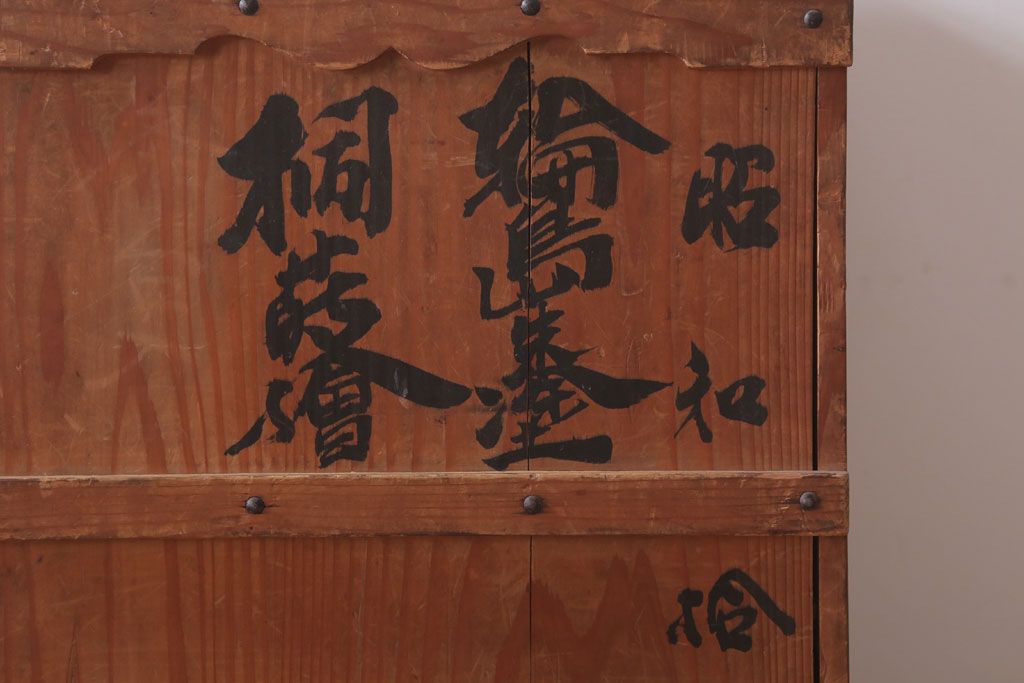 昭和拾
輪島塗
桐蒔繪